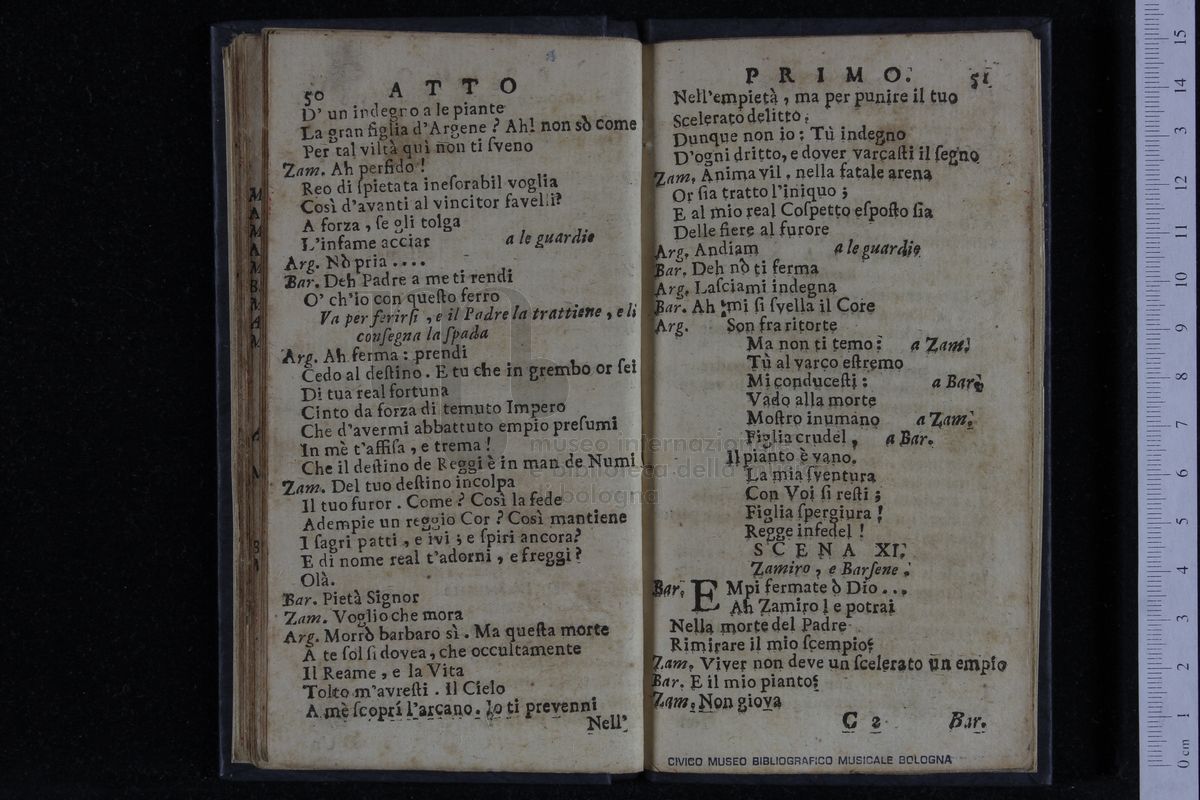 50 ATTO
D' un indegno a le piante
La gran figlia d'Argene? Ah! non sò come
Per tal viltà quì non ti ſveno
Zam. Ah perfido!
Reo di ſpietata ineſorabil voglia
Così d'avanti al vincitor favelli?
A forza, ſe gli tolga
L'infame acciar a le guardie
Arg. Nò pria ....
Bar. Deh Padre a me ti rendi
O' ch'io con queſto ferro
Va per ferirſi, e il Padre la trattiene, e li
conſegna la ſpada
Arg. Ah ferma: prendi
Cedo al deſtino. E tu che in grembo or ſei
Di tua real fortuna
Cinto da forza di temuto Impero
Che d'avermi abbattuto empio preſumi
In mè t'affiſa, e trema!
Che il deſtino de Reggi è in man de Numi
Zam. Del tuo deſtino incolpa
Il tuo furor. Come? Così la fede
Adempie un reggio Cor? Così mantiene
I ſagri patti, e ivi; e ſpiri ancora?
E di nome real t'adorni, e freggi?
Olà.
Bar. Pietà Signor
Zam. Voglio che mora
Arg. Morrò barbaro sì. Ma queſta morte
A te ſol ſi dovea, che occultamente
Il Reame, e la Vita
Tolto m'avreſti. Il Cielo
A mè ſcoprí l'arcano. Io ti prevenni
Nell'
PRIMO. 51
Nell'empietà, ma per punire il tuo
Scelerato delitto.
Dunque non io: Tù indegno
D'ogni dritto, e dover varcaſti il ſegno
Zam. Anima vil, nella fatale arena
Or ſia tratto l'iniquo;
E al mio real Coſpetto eſpoſto ſia
Delle fiere al furore
Arg. Andiam a le guardie
Bar. Deh nò ti ferma
Arg. Laſciami indegna
Bar. Ah mi ſi ſvella il Core
Arg. Son fra ritorte
Ma non ti temo: a Zam.
Tù al varco eſtremo
Mi conduceſti: a Bar.
Vado alla morte
Moſtro inumano a Zam.
Figlia crudel, a Bar.
Il pianto è vano.
La mia ſventura
Con Voi ſi reſti;
Figlia ſpergiura!
Regge infedel!
SCENA XI.
Zamiro, e Barſene.
Bar. EMpi fermate ò Dio...
Ah Zamiro! e potrai
Nella morte del Padre
Rimirare il mio ſcempio?
Zam. Viver non deve un ſcelerato un empio
Bar. E il mio pianto?
Zam. Non giova
C 2 Bar.
CIVICO MUSEO BIBLIOGRAFICO MUSICALE BOLOGNA
museo internazionale
e biblioteca della musica
di bologna
0 cm 1 2 3 4 5 6 7 8 9 10 11 12 13 14 15